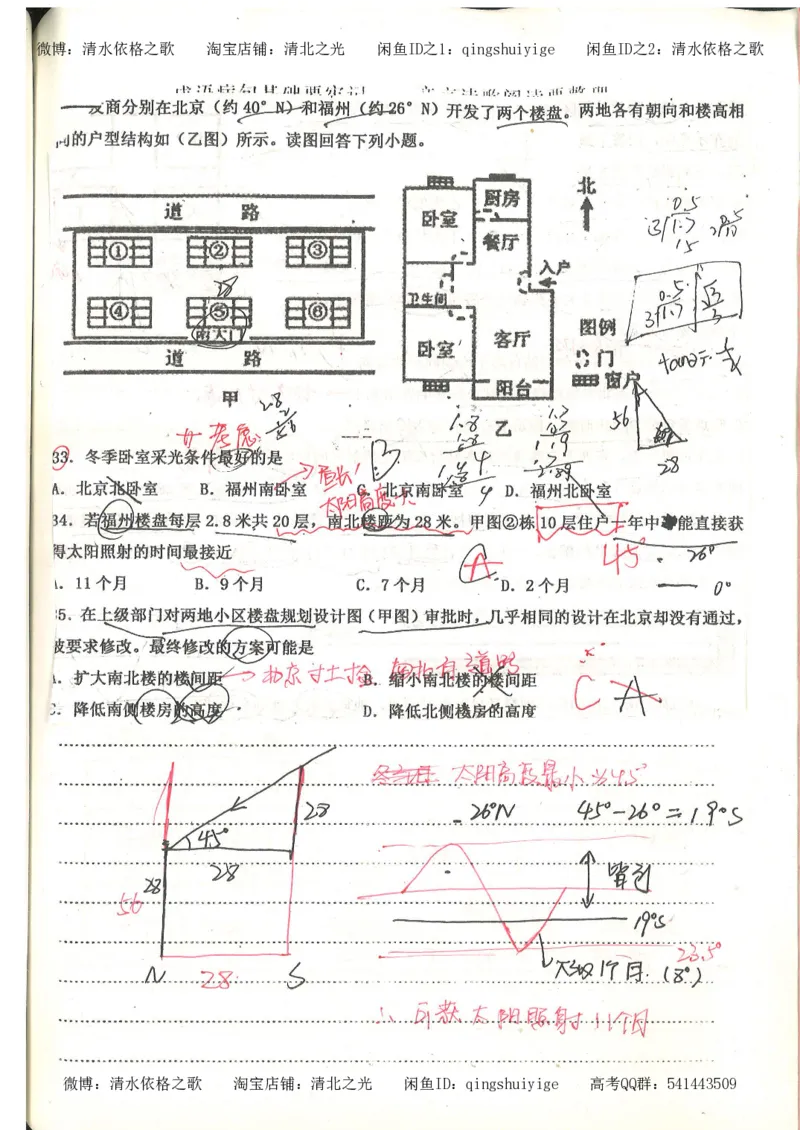 微博：清水依格之歌 淘宝店铺：清北之光 闲鱼ID之1：qingshuiyige 闲鱼ID之2：清水依格之歌
发商分别在北京（约 40° N）和福州（约 26° N）开发了两个楼盘。两地各有朝向和楼高相
同的户型结构如（乙图）所示。读图回答下列小题。
道 路
① ② ③
④ ⑤ ⑥
南大门
道 路
甲
卧室 厨房
餐厅
入户
卫生间
卧室 客厅
阳台
乙
北
图例
门
窗户
0.5
3/1.7
15
0.5
3/1.7
56
28
2.8
33. 冬季卧室采光条件最好的是
A. 北京北卧室 B. 福州南卧室 C. 北京南卧室 D. 福州北卧室
B
太阳高度大
34. 若福州楼盘每层 2.8 米共 20 层，南北楼距为 28 米。甲图②栋 10 层住户一年中 能直接获
得太阳照射的时间最接近
A. 11 个月 B. 9 个月 C. 7 个月 D. 2 个月
A
45°
26°
0°
35. 在上级部门对两地小区楼盘规划设计图（甲图）审批时，几乎相同的设计在北京却没有通过，
被要求修改。最终修改的方案可能是
A. 扩大南北楼的楼间距 B. 缩小南北楼的楼间距
C. 降低南侧楼房的高度 D. 降低北侧楼房的高度
C A
太阳高度最小为45°
26°N 45°-26°=19°S
28
45°
28
28
56
N 28 S
19°S
23.5°
大约1个月 (8°)
∴ 可获太阳照射11个月
微博：清水依格之歌 淘宝店铺：清北之光 闲鱼ID：qingshuiyige 高考QQ群：541443509